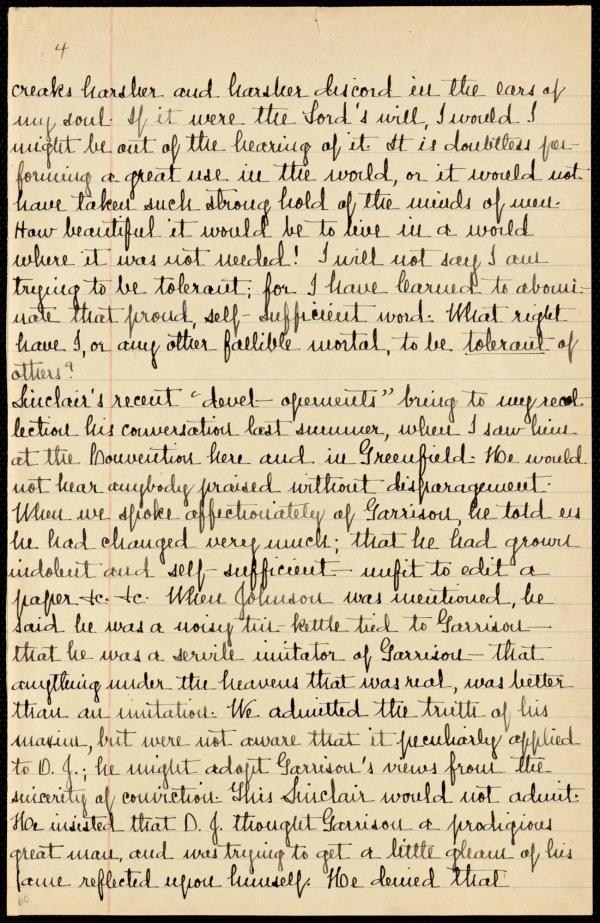 4
creaks harsher and harsher discord in the ears of
my soul. If it were the Lord's will, I would I
might be out of the hearing of it. It is doubtless per-
forming a great use in the world, or it would not
have taken such strong hold of the minds of men.
How beautiful it would be to live in a world
where it was not needed! I will not say I am
trying to be tolerant; for I have learned to abomi-
nate that proud, self-sufficient word. What right
have I, or any other fallible mortal, to be tolerant of
others?
Sinclair's recent "devel-opements" bring to my recol-
lection his conversation last summer, when I saw him
at the Convention here and in Greenfield. He would
not hear anybody praised without disparagement.
When we spoke affectionately of Garrison, he told us
he had changed very much; that he had grown
indolent and self-sufficient — unfit to edit a
paper &c. &c. When Johnson was mentioned, he
said he was a noisy tin-kettle tied to Garrison—
that he was a servile imitator of Garrison — that
anything under the heavens that was real, was better
than an imitation. We admitted the truth of his
maxim, but were not aware that it peculiarly applied
to O. J.; he might adopt Garrison's views from the
sincerity of conviction. This Sinclair would not admit.
He insisted that O. J. thought Garrison a prodigious
great man, and was trying to get a little gleam of his
fame reflected upon himself. He denied that
60